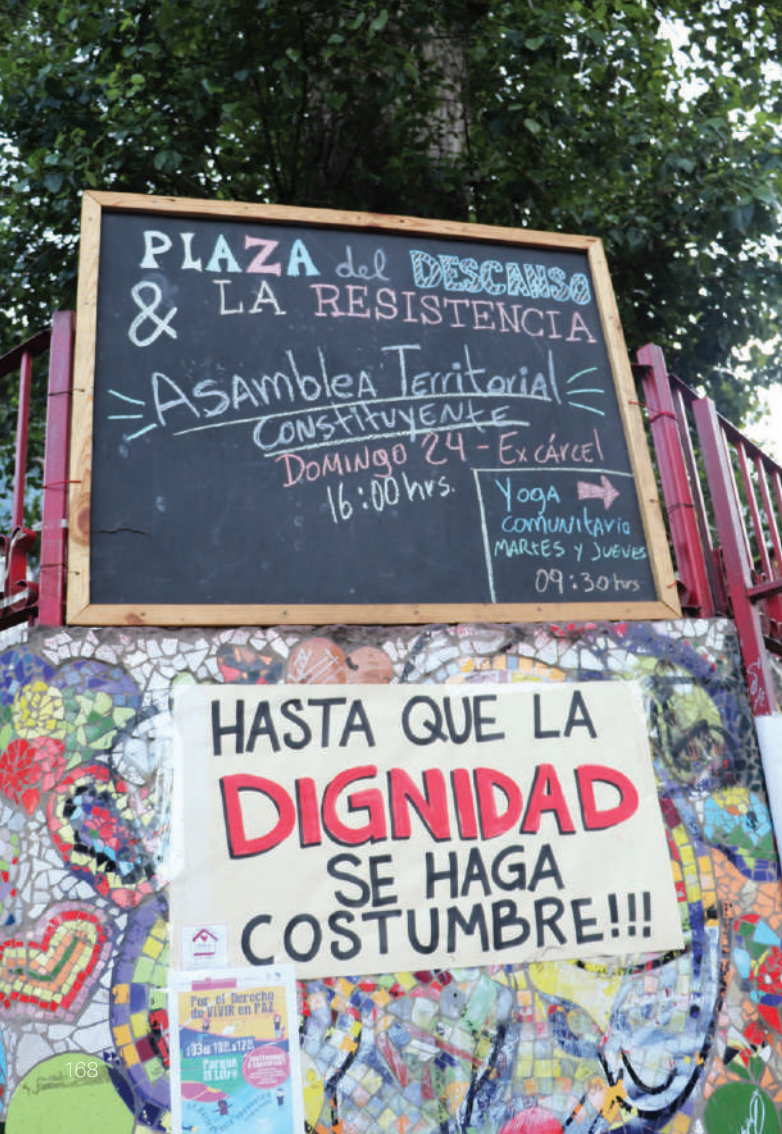 PLAZA del DESCANSO
& LA RESISTENCIA
ASAmbleA Territorial
CONStituyENtE
DOMINgO 24 - Ex cárcel
16:00 hrs.
YogA
comunitario
MARtES y JuEvEs
09:30 hrs
HASTA QUE LA
DIGNIDAD
SE HAGA
COSTUMBRE!!!
Por el Derecho
de VIVIR en PAZ
Parque
168